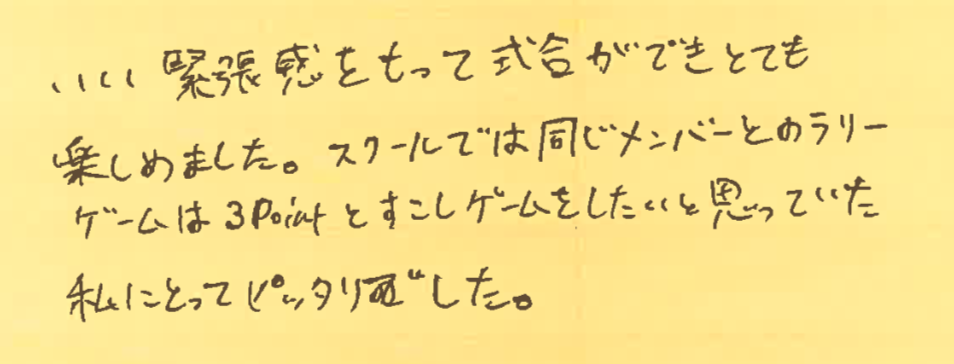 いい緊張感をもって式合ができとても
楽しめました。スクールでは同じメンバーとのラリー
ゲームは3Pointとすこしゲームをしたいと思っていた
私にとってピッタリでした。